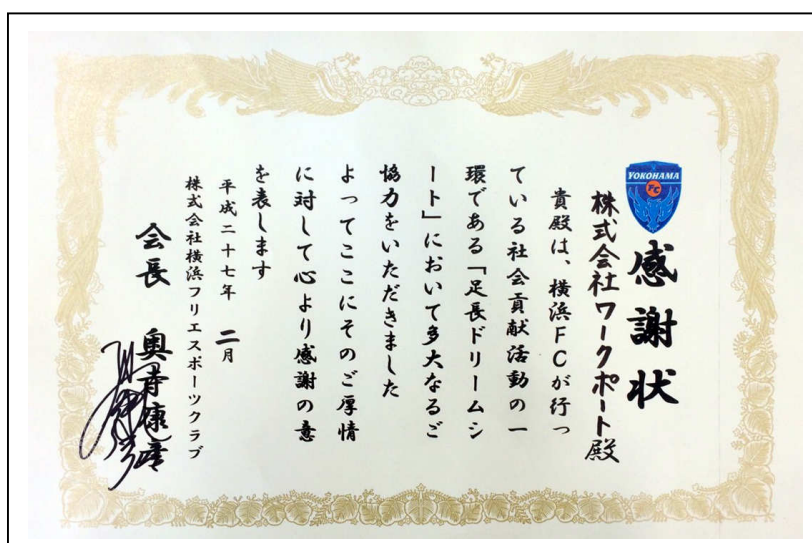 YOKOHAMA
FC
感謝状
株式会社ワークポート殿
貴殿は、横浜FCが行っ
ている社会貢献活動の一
環である「足長ドリームシ
ート」において多大なるご
協力をいただきました
よってここにそのご厚情
に対して心より感謝の意
を表します
平成二十七年 二月
株式会社横浜フリエスポーツクラブ
会長 奥寺康彦